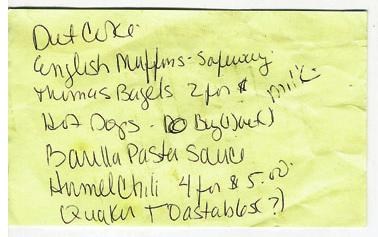 Diet Coke
English Muffins - Safeway
Thomas Bagels 2 for $
milk
Hot Dogs -
Barilla Pasta Sauce
Hormel Chili 4 for $5.00
Quaker Toastables(?)